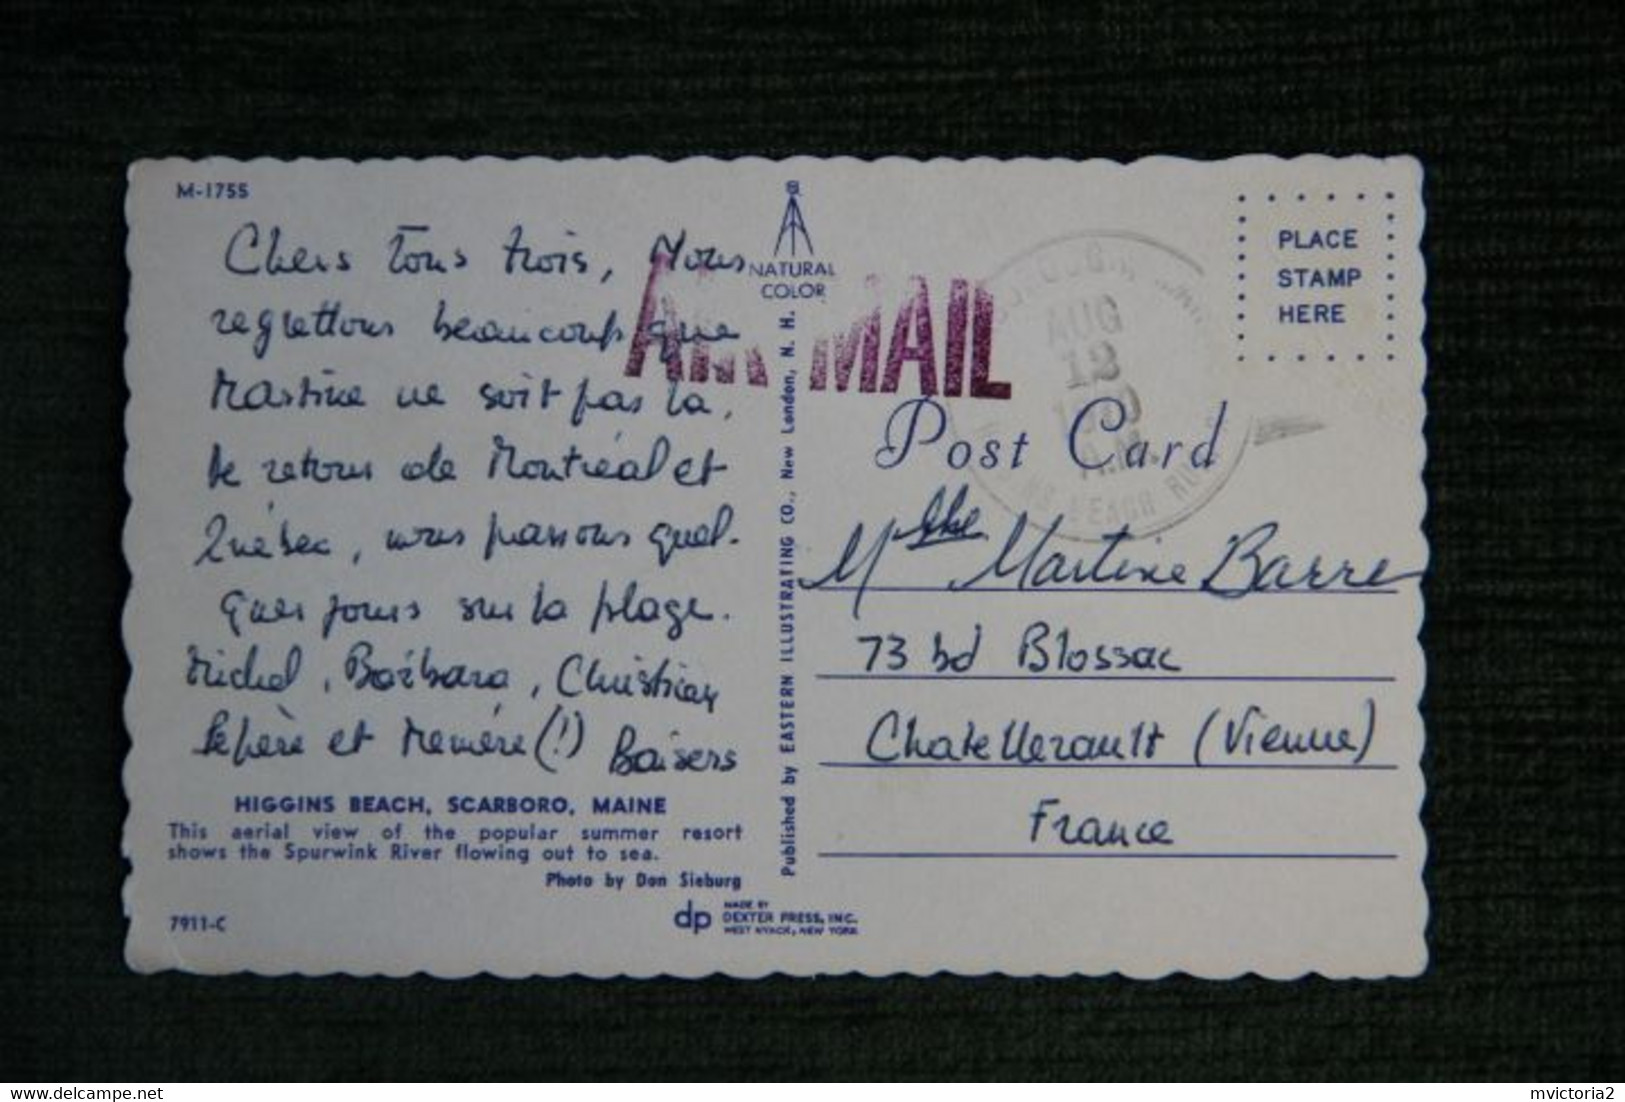 M-1755
Chers Tous trois, Nous
regrettons beaucoup que
Martine ne soit pas là,
de retour de Montréal et
Québec, nous passons quel-
ques jours sur la plage.
Michel, Barbara, Christian
Pepère et Memère (!) Baisers
HIGGINS BEACH, SCARBORO, MAINE
This aerial view of the popular summer resort
shows the Spurwink River flowing out to sea.
Photo by Don Sieburg
7911-C
NATURAL
COLOR
AIR MAIL
Published by EASTERN ILLUSTRATING CO., New London, N. H.
dp
MADE BY
DEXTER PRESS, INC.
WEST NYACK, NEW YORK
AUG
12
PLACE
STAMP
HERE
Post Card
Martine Barre
73 bd Blossac
Chatellerault (Vienne)
France
mvictoria2